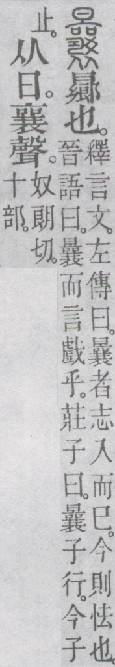 曩曏也。釋言文。左傳曰。曩者志入而巳。今則怯也
晉語曰。曩而言戲乎。莊子曰。曩子行。今子
止。从日。襄聲。奴朗切。
十部。